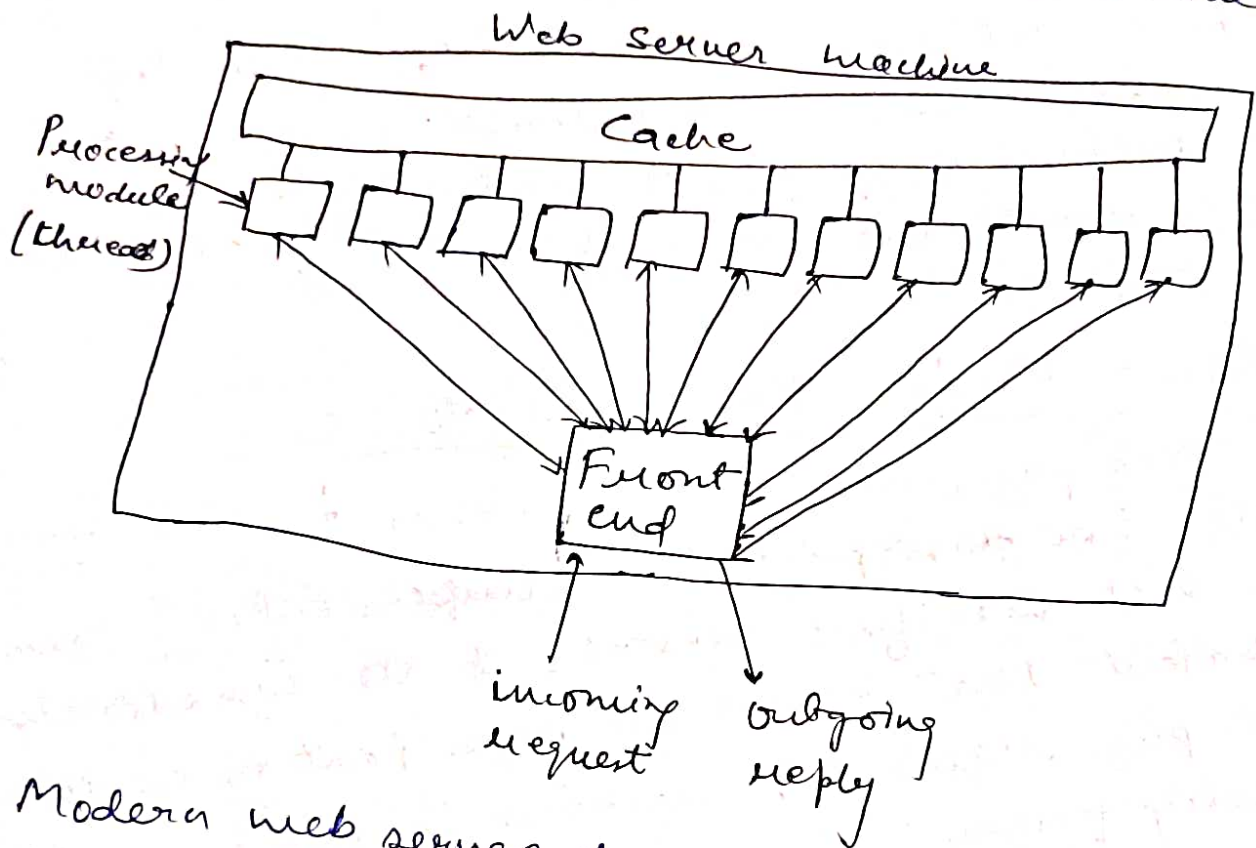 Web server machine
Cache
Processing
module
(thread)
Front
end
incoming
request
outgoing
reply
Modern web